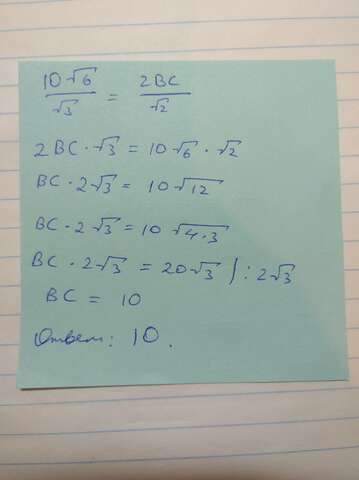 10√6/√3 = 2BC/√2
2BC·√3 = 10√6·√2
BC·2√3 = 10√12
BC·2√3 = 10√4·3
BC·2√3 = 20√3 /:2√3
BC = 10
Ответ: 10.